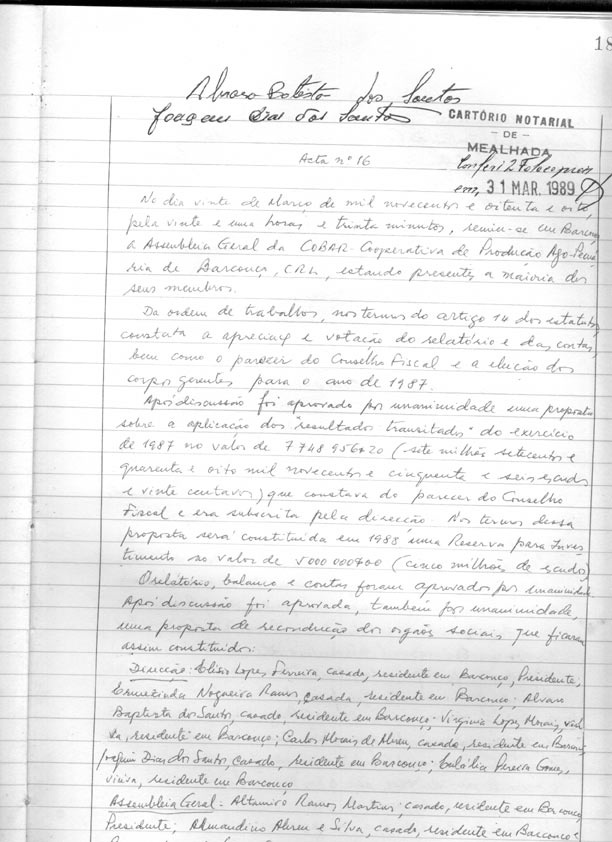 18
Alvaro Batista dos Santos
Joaquim Dias dos Santos
CARTÓRIO NOTARIAL
- DE -
MEALHADA
Conferi 2 Fotocopias
em, 31 MAR. 1989
Acta nº 16
No dia vinte de Março de mil novecentos e oitenta e oito,
pela vinte e uma horas e trinta minutos, reuniu-se em Barcouço
a Assembleia Geral da COBAR-Cooperativa de Produção Ago-Pecuá
ria de Barcouço, CRL, estando presentes a maioria dos
seus membros.
Da ordem de trabalhos, nos termos do artigo 14 dos estatutos
constata a apreciação e votação do relatório e das contas,
bem como o parecer do Conselho Fiscal e a eleição dos
corpos gerentes para o ano de 1987.
Após discussão foi aprovado por unanimidade uma proposta
sobre a aplicação dos "resultados transitados" do exercício
de 1987 no valor de 7 748 956$20 (sete milhões setecentos e
quarenta e oito mil novecentos e cinquenta e seis escudos
e vinte centavos) que constava do parecer do Conselho
Fiscal e era subscrita pela direcção. Nos termos dessa
proposta será constituída em 1988 uma Reserva para Inves
timento no valor de 5 000 000$00 (cinco milhões de escudos)
O relatório, balanço e contas foram aprovados por unanimidade.
Após discussão foi aprovada, também por unanimidade,
uma proposta de recondução dos orgãos sociais que ficaram
assim constituídos:
Direcção: Elísio Lopes Ferreira, casado, residente em Barcouço, Presidente,
Ermezinda Nogueira Ramos, casada, residente em Barcouço; Alvaro
Baptista dos Santos, casado, residente em Barcouço; Virginia Lopes Morais, viú
va, residente em Barcouço; Carlos Morais de Abreu, casado, residente em Barcouço,
Joaquim Dias dos Santos, casado, residente em Barcouço; Eulália Pereira Gomes,
viúva, residente em Barcouço
Assembleia Geral: Altamiro Ramos Martins, casado, residente em Barcouço,
Presidente; Armandino Abreu e Silva, casado, residente em Barcouço e